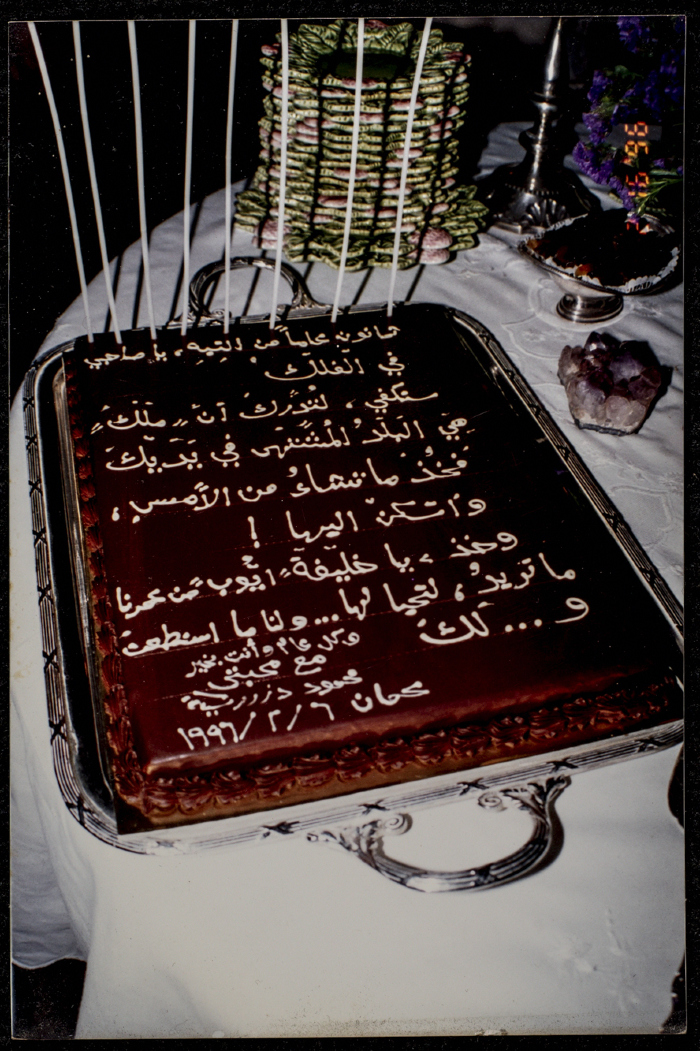 ثمانون عاماً من التيه، يا صاحبي
في الفلك
ستكفي، لتدرك أنّ مَلَكْ
هي البلدُ المُشتهى في يديك
فخُذْ ما تشاءُ من الأمسِ،
وأسكن اليها !
وخذ، يا خليفة أيّوب من عمرنا
ما تريدُ، لتحيا لها... ولنا ما استطعت
و... لك
وكل عام وأنت بخير
مع محبتي
محمود
عمان ٦ /٢ /١٩٩٦
'96